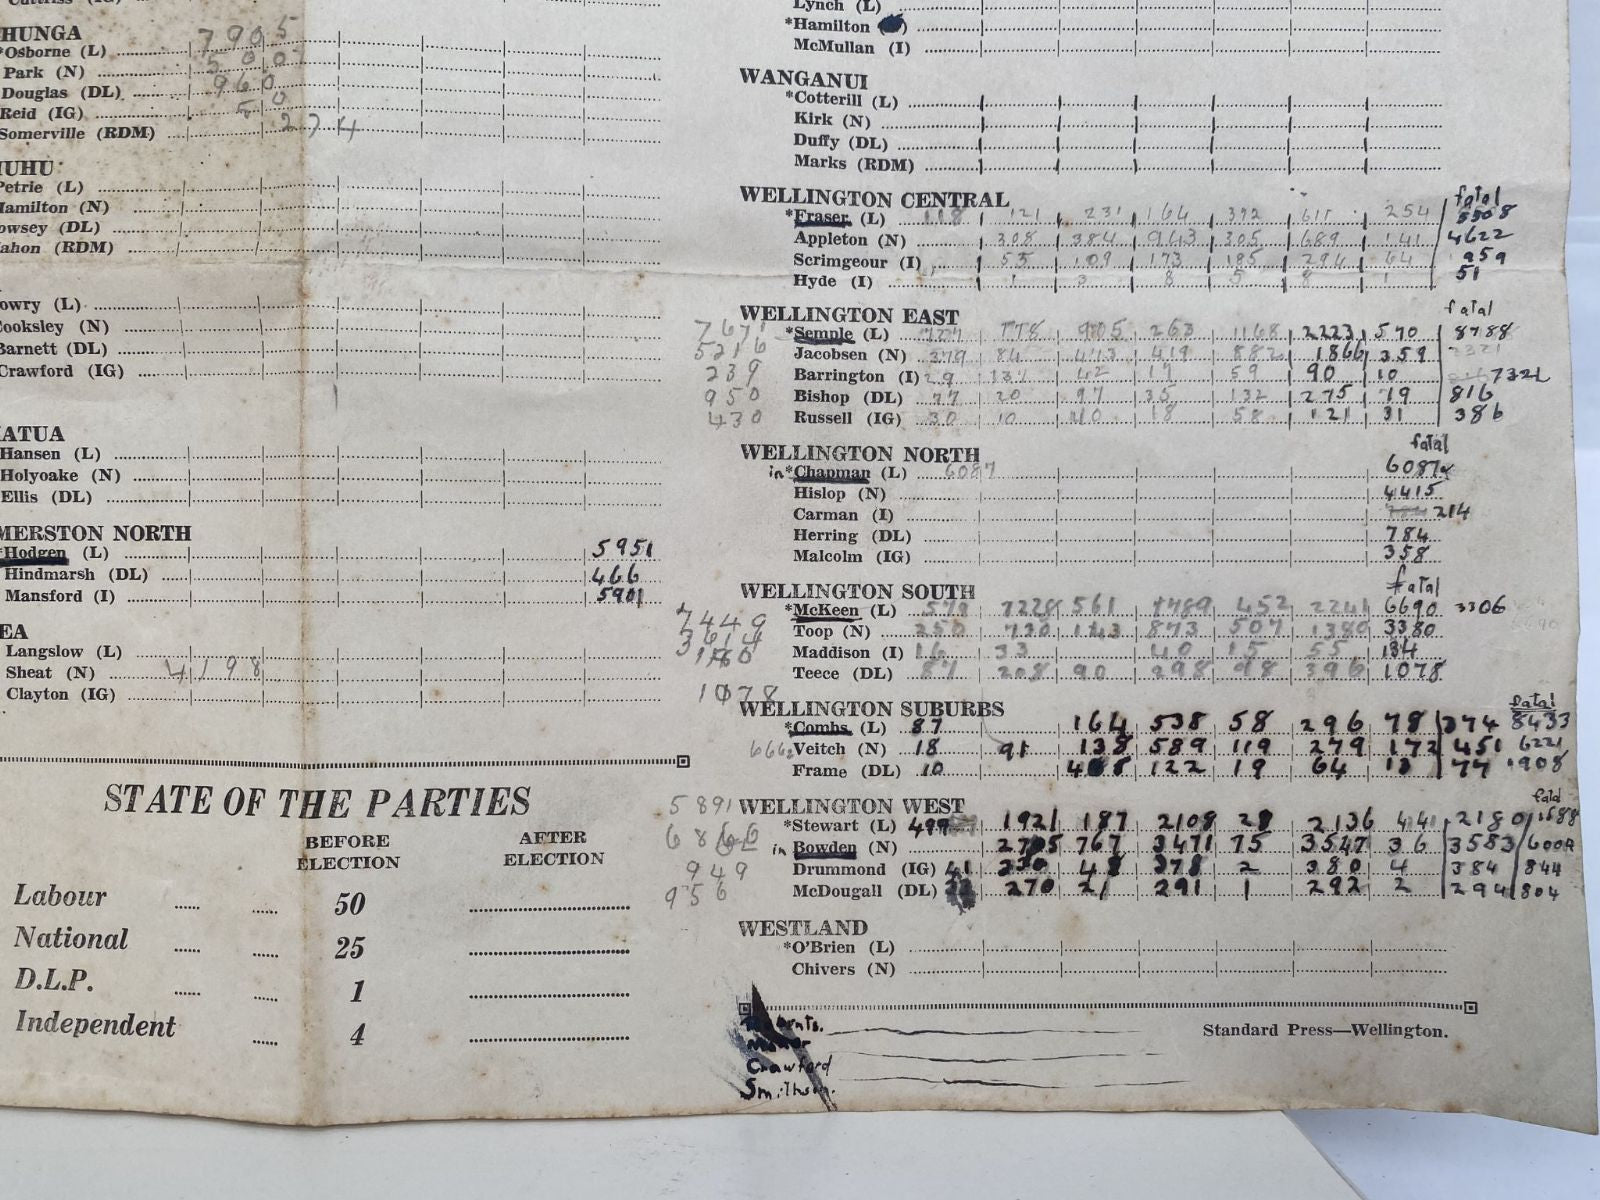 HUNGA 7905
*Osborne (L)
Park (N)
Douglas (DL) 960
Reid (IG) 50
Somerville (RDM) 274
HUHU
Petrie (L)
Hamilton (N)
owsey (DL)
ahon (RDM)
owry (L)
Cooksley (N)
Barnett (DL)
Crawford (IG)
ATUA
Hansen (L)
Holyoake (N)
Ellis (DL)
MERSTON NORTH
*Hodgen (L) 5951
Hindmarsh (DL) 466
Mansford (I) 5901
EA
Langslow (L)
Sheat (N) 4198
Clayton (IG)
STATE OF THE PARTIES
BEFORE ELECTION AFTER ELECTION
Labour 50
National 25
D.L.P. 1
Independent 4
Lynch (L)
*Hamilton
McMullan (I)
WANGANUI
*Cotterill (L)
Kirk (N)
Duffy (DL)
Marks (RDM)
WELLINGTON CENTRAL
*Fraser (L) 118 121 231 164 372 611 254 5508
Appleton (N) 308 384 943 305 689 141 4622
Scrimgeour (I) 53 109 173 185 294 64 959
Hyde (I) 1 3 8 5 8 1 51
WELLINGTON EAST
7671 *Semple (L) 778 905 263 1168 2223 570 8788
5216 Jacobsen (N) 379 84 473 419 882 1866 359
239 Barrington (I) 29 137 42 17 59 90 10 7321
950 Bishop (DL) 77 20 97 35 132 275 79 816
430 Russell (IG) 30 10 40 18 58 121 31 386
WELLINGTON NORTH
in *Chapman (L) 6087 6087
Hislop (N) 4415
Carman (I) 214
Herring (DL) 784
Malcolm (IG) 358
WELLINGTON SOUTH
7449 *McKeen (L) 578 7228 561 1789 452 2241 6690 3306
3614 Toop (N) 250 720 143 873 507 1380 3380
Maddison (I) 16 33 40 15 55 134
1078 Teece (DL) 87 208 90 298 98 396 1078
WELLINGTON SUBURBS
*Combs (L) 87 164 538 58 296 78 374 8433
Veitch (N) 18 91 138 589 119 279 172 451 6221
Frame (DL) 10 122 19 64 13 77 908
5891 WELLINGTON WEST
*Stewart (L) 499 1921 187 2108 28 2136 44 2180
in Bowden (N) 2705 767 3471 75 3547 36 3583
949 Drummond (IG) 41 330 48 378 2 380 4 384 844
956 McDougall (DL) 270 21 291 1 292 2 294 804
WESTLAND
*O'Brien (L)
Chivers (N)
Standard Press—Wellington.
Crawford